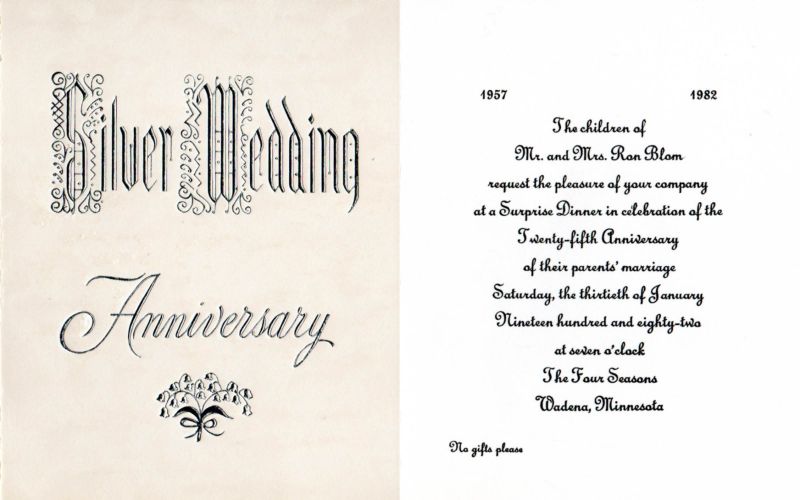 Silver Wedding
Anniversary
1957 1982
The children of
Mr. and Mrs. Ron Blom
request the pleasure of your company
at a Surprise Dinner in celebration of the
Twenty-fifth Anniversary
of their parents' marriage
Saturday, the thirtieth of January
Nineteen hundred and eighty-two
at seven o'clock
The Four Seasons
Wadena, Minnesota
No gifts please